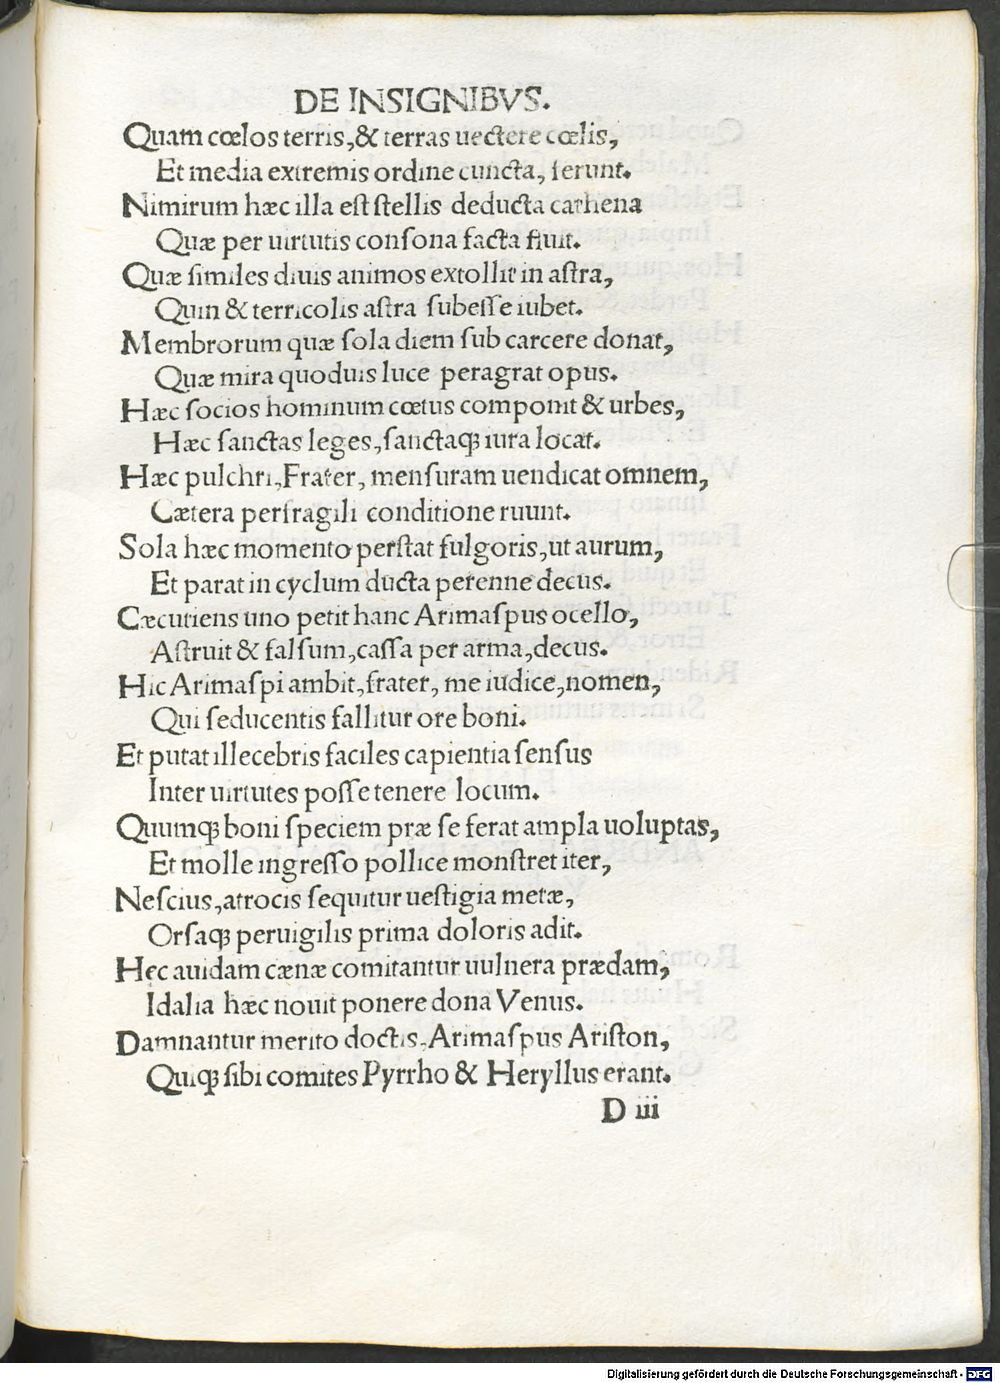 DE INSIGNIBVS.
Quam cœlos terris, & terras uectere cœlis,
Et media extremis ordine cuncta, ferunt.
Nimirum hæc illa est stellis deducta cathena
Quæ per uirtutis consona facta fluit.
Quæ similes diuis animos extollit in astra,
Quin & terricolis astra subesse iubet.
Membrorum quæ sola diem sub carcere donat,
Quæ mira quoduis luce peragrat opus.
Hæc socios hominum cœtus componit & urbes,
Hæc sanctas leges, sanctaqꝫ iura locat.
Hæc pulchri, Frater, mensuram uendicat omnem,
Cætera perfragili conditione ruunt.
Sola hæc momento perstat fulgoris, ut aurum,
Et parat in cyclum ducta perenne decus.
Cæcutiens uno petit hanc Arimaspus ocello,
Astruit & falsum, cassa per arma, decus.
Hic Arimaspi ambit, frater, me iudice, nomen,
Qui seducentis fallitur ore boni.
Et putat illecebris faciles capientia sensus
Inter uirtutes posse tenere locum.
Quumqꝫ boni speciem præ se ferat ampla uoluptas,
Et molle ingresso pollice monstret iter,
Nescius, atrocis sequitur uestigia metæ,
Orsaqꝫ peruigilis prima doloris adit.
Hęc auidam cænæ comitantur uulnera prædam,
Idalia hæc nouit ponere dona Venus.
Damnantur merito doctis, Arimaspus Ariston,
Quiqꝫ sibi comites Pyrrho & Heryllus erant.
D iii
Digitalisierung gefördert durch die Deutsche Forschungsgemeinschaft - DFG